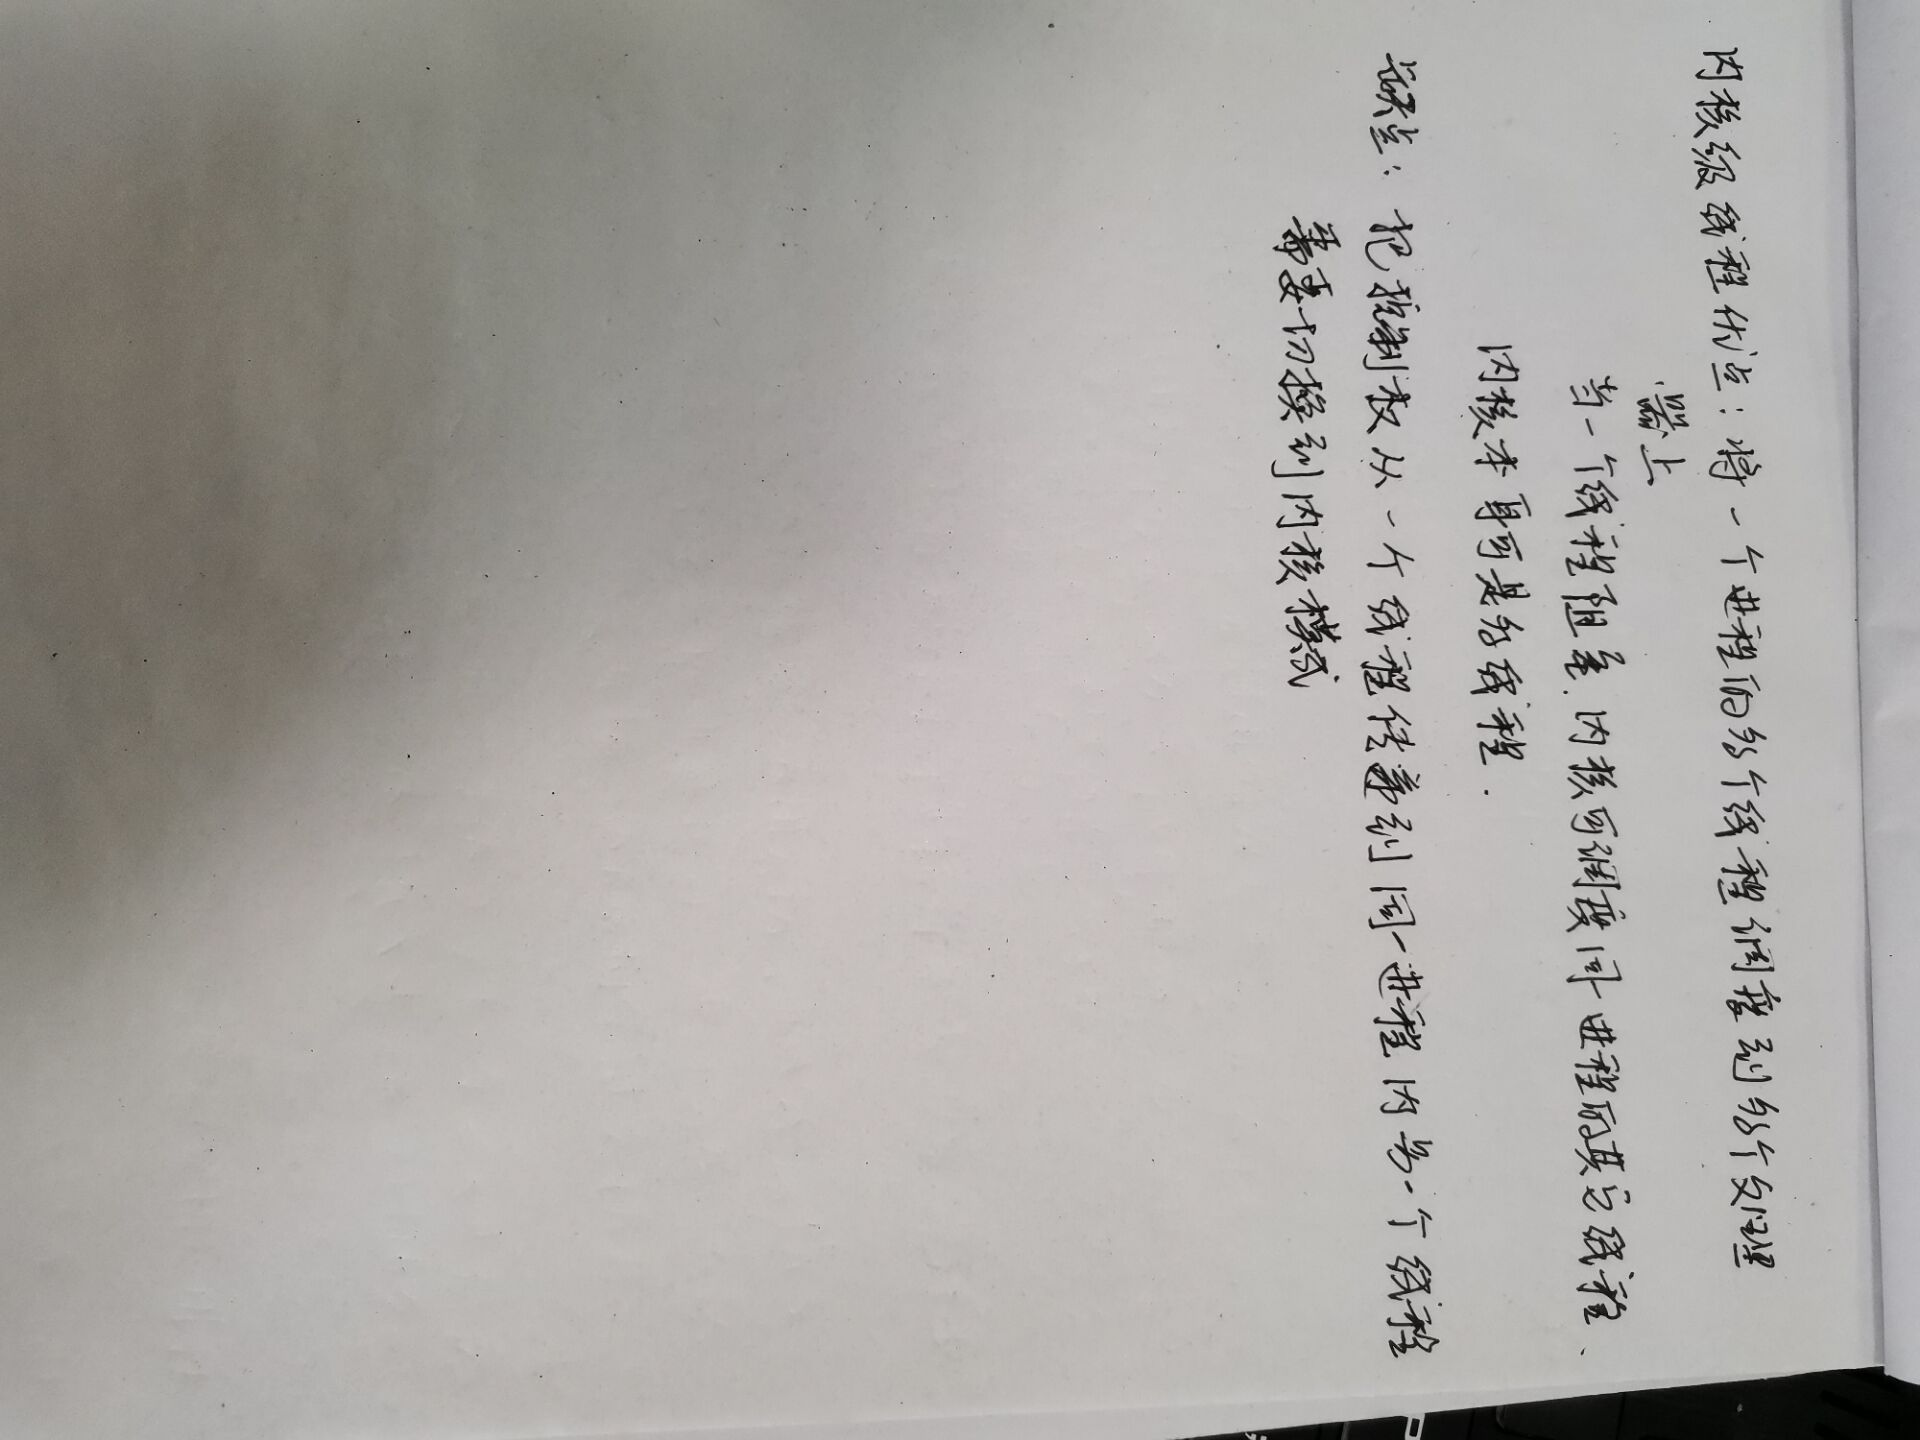 内核级线程优点：将一个进程的多个线程调度到多个处理
器上
当一个线程阻塞，内核可调度同一进程的其它线程、
内核本身可是多线程.
缺点：把控制权从一个线程传递到同一进程内另一个线程
需要切换到内核模式